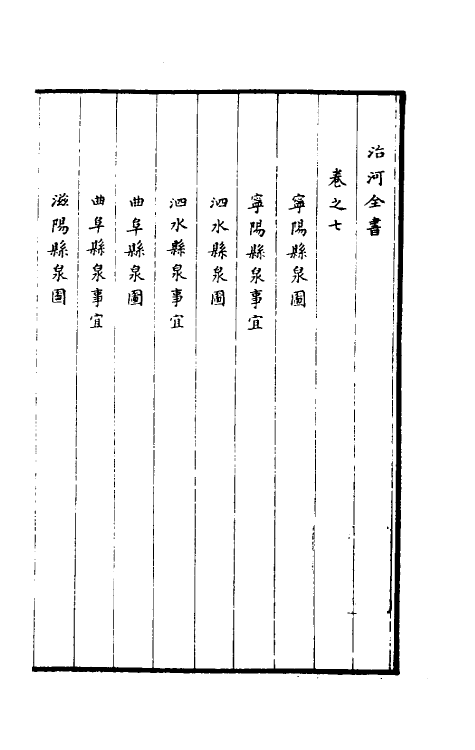 治河全書
卷之七
寧陽縣泉圖
寧陽縣泉事宜
泗水縣泉圖
泗水縣泉事宜
曲阜縣泉圖
曲阜縣泉事宜
滋陽縣泉圖